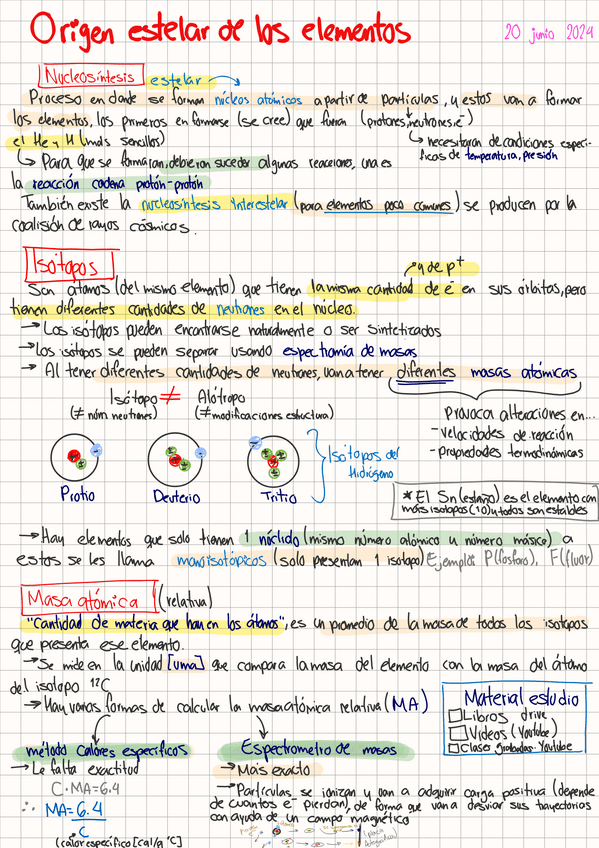 Origen estelar de los elementos
20 junio 2024
Nucleosíntesis estelar
Proceso en donde se forman núcleos atómicos a partir de partículas, y estos van a formar
los elementos, los primeros en formarse (se cree) que fueron (protones, neutrones, e⁻)
el He y H (más sencillos)
necesitaron de condiciones especí-
ficas de temperatura, presión
Para que se formaran, debieron suceder algunas reacciones, una es
la reacción cadena protón-protón
También existe la nucleosíntesis interestelar (para elementos poco comunes) se producen por la
coalisión de rayos cósmicos.
Isótopos
y de p⁺
Son átomos (del mismo elemento) que tienen la misma cantidad de e⁻ en sus órbitas, pero
tienen diferentes cantidades de neutrones en el núcleo.
→ Los isótopos pueden encontrarse naturalmente o ser sintetizados
→ los isótopos se pueden separar usando espectromía de masas
→ Al tener diferentes cantidades de neutrones, van a tener diferentes masas atómicas
Isótopo ≠ Alótropo
(≠ núm neutrones) (≠ modificaciones estructura)
Provoca alteraciones en...
- velocidades de reacción
- propiedades termodinámicas
Isótopos del
Hidrógeno
Protio Deuterio Tritio
* El Sn (estaño) es el elemento con
más isótopos (10) y todos son estables
→ Hay elementos que solo tienen 1 núclido (mismo número atómico y número másico) a
estos se les llama monoisotópicos (solo presentan 1 isótopo) Ejemplos P (fósforo), F (fluor)
Masa atómica (relativa)
"Cantidad de materia que hay en los átomos", es un promedio de la masa de todos los isótopos
que presenta ese elemento.
→ Se mide en la unidad [uma] que compara la masa del elemento con la masa del átomo
del isótopo ¹²C
→ Hay varias formas de calcular la masa atómica relativa (MA)
Material estudio
Libros, drive
Videos (Youtube)
Clases grabadas-Youtube
método calores específicos
→ Le falta exactitud
C·MA=6.4
∴ MA= 6.4
C
(calor específico [cal/g °C]
Espectrómetro de masas
→ Más exacto
→ Partículas se ionizan y van a adquirir carga positiva (depende
de cuantos e⁻ pierdan), de forma que van a desviar sus trayectorias
con ayuda de un campo magnético
(placa
fotográfica)